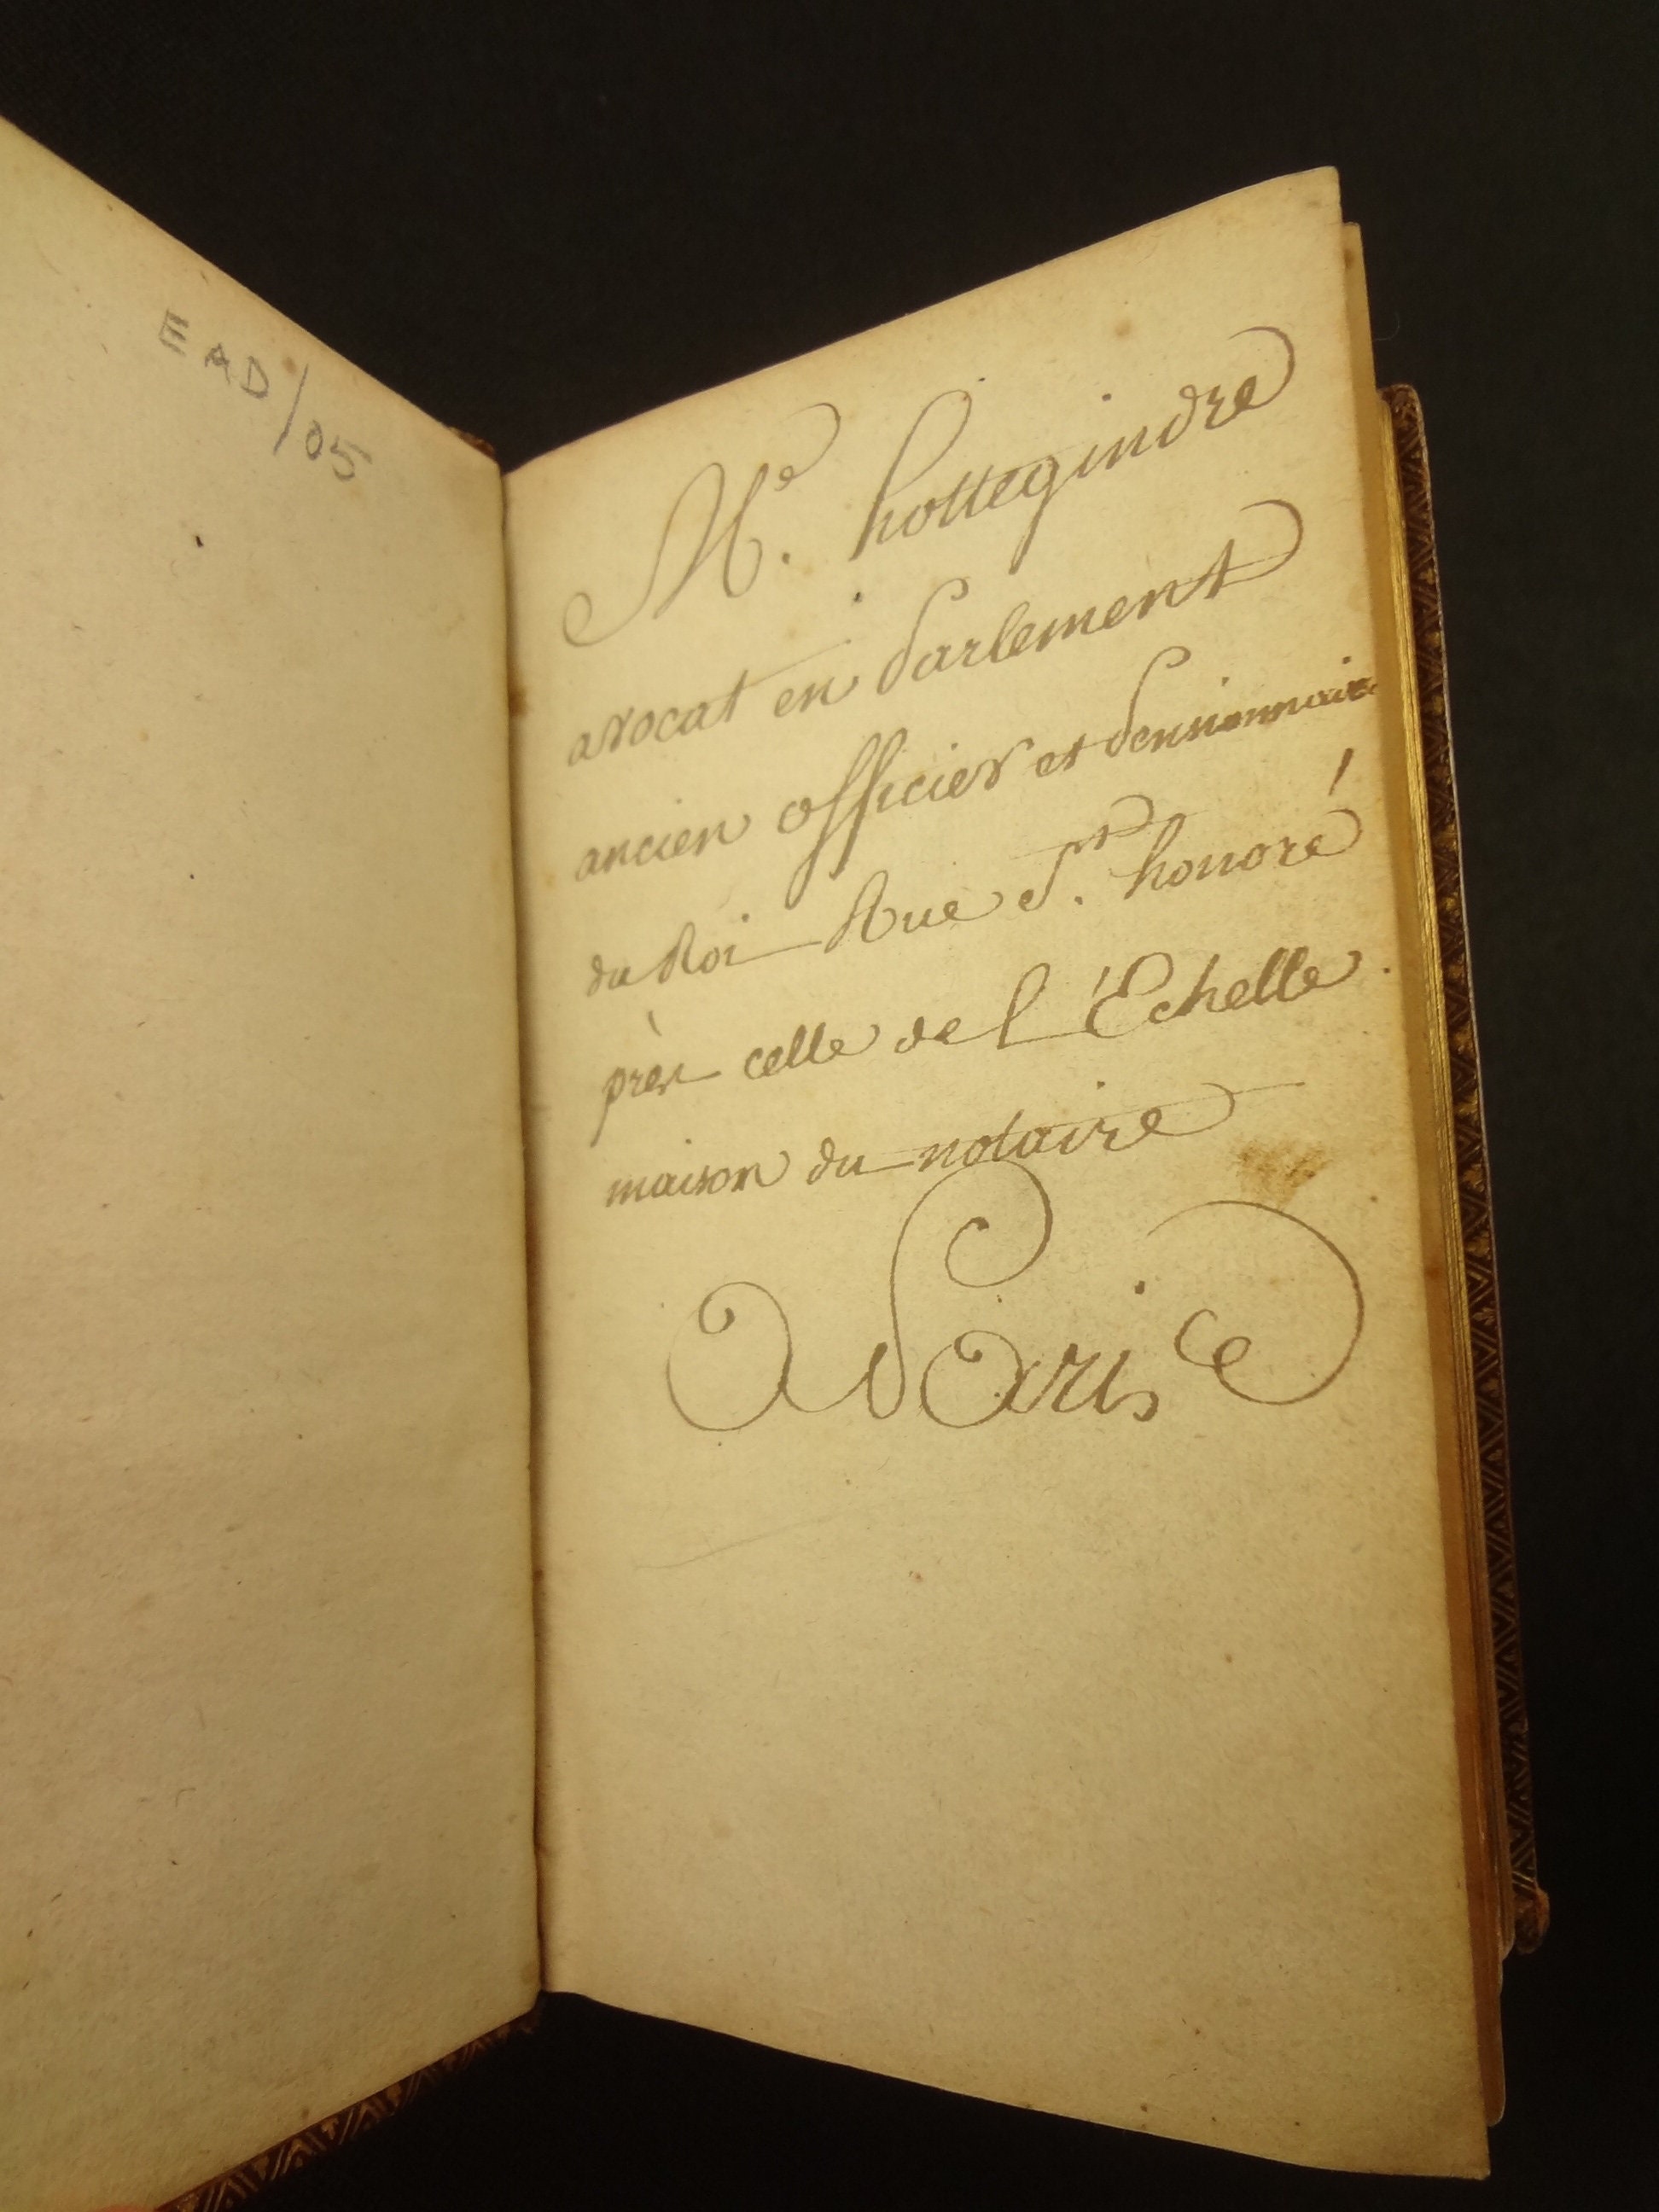 EAD/05
Me. hottegindre
avocat en Parlement
ancien officier et Pensionnaire
du Roi Rue St. honoré
près celle de l'Echelle
maison du notaire
A Paris